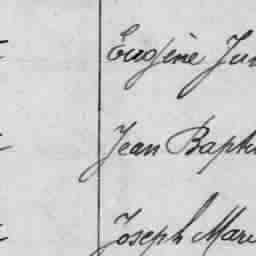 Eugène Jun
Jean Bapti
Joseph Mari